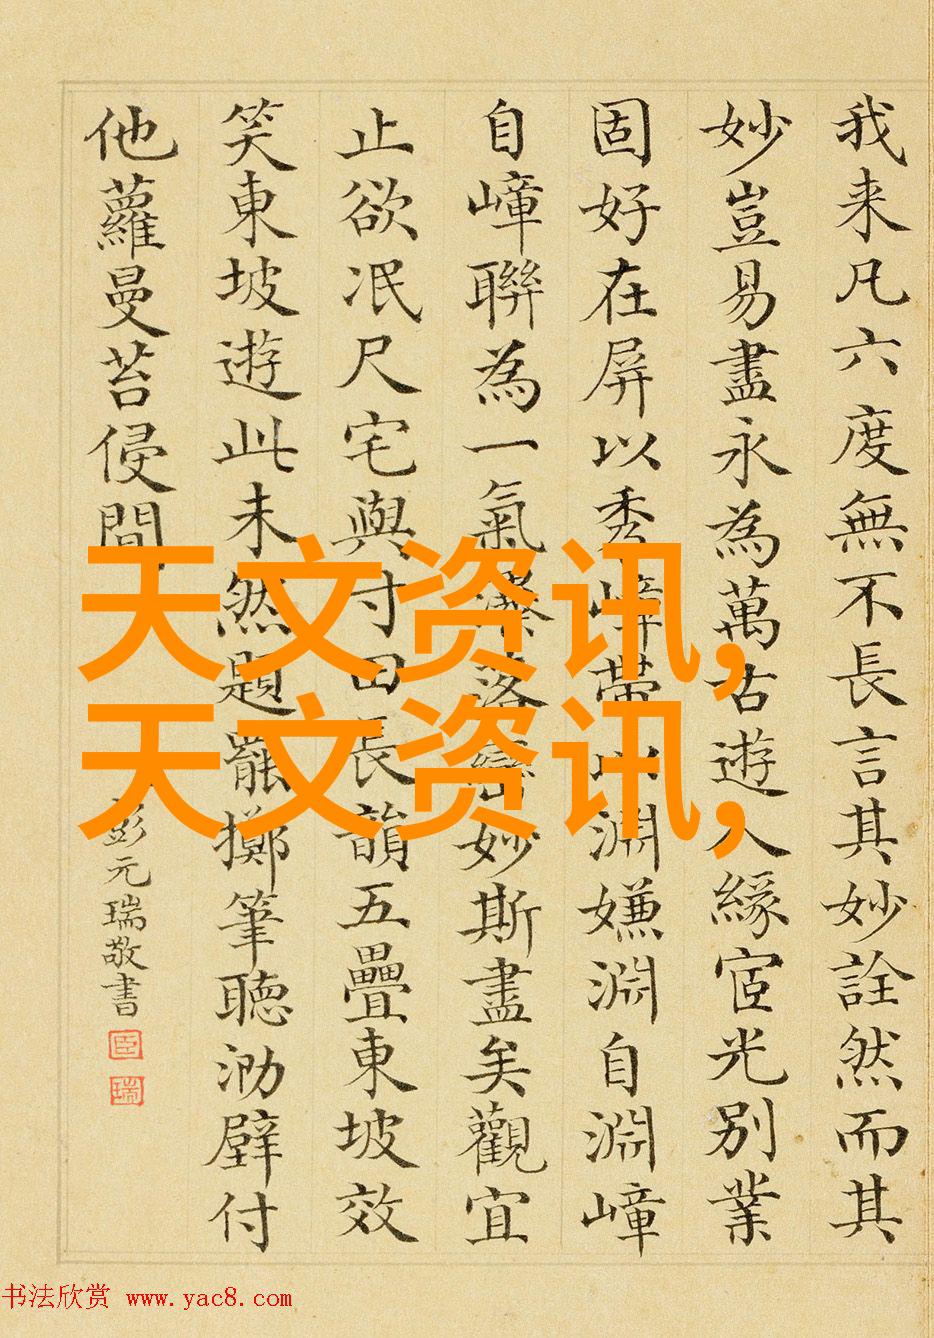 我来凡六度無不長言其妙詮然而其
妙豈易盡永為萬古遊人緣宧光別業
固好在屏以秀嶂帶以淵嫌淵自淵嶂
自嶂聯為一氣瀠落巒妙斯盡矣觀宜
止欲泯尺宅與寸田長韻五疊東坡效
笑東坡遊此未然題罷擲筆聽泐壁付
他蘿曼苔侵間
彭元瑞敬書
臣
瑞
天文资讯,
天文资讯,
书法欣赏 www.yac8.com